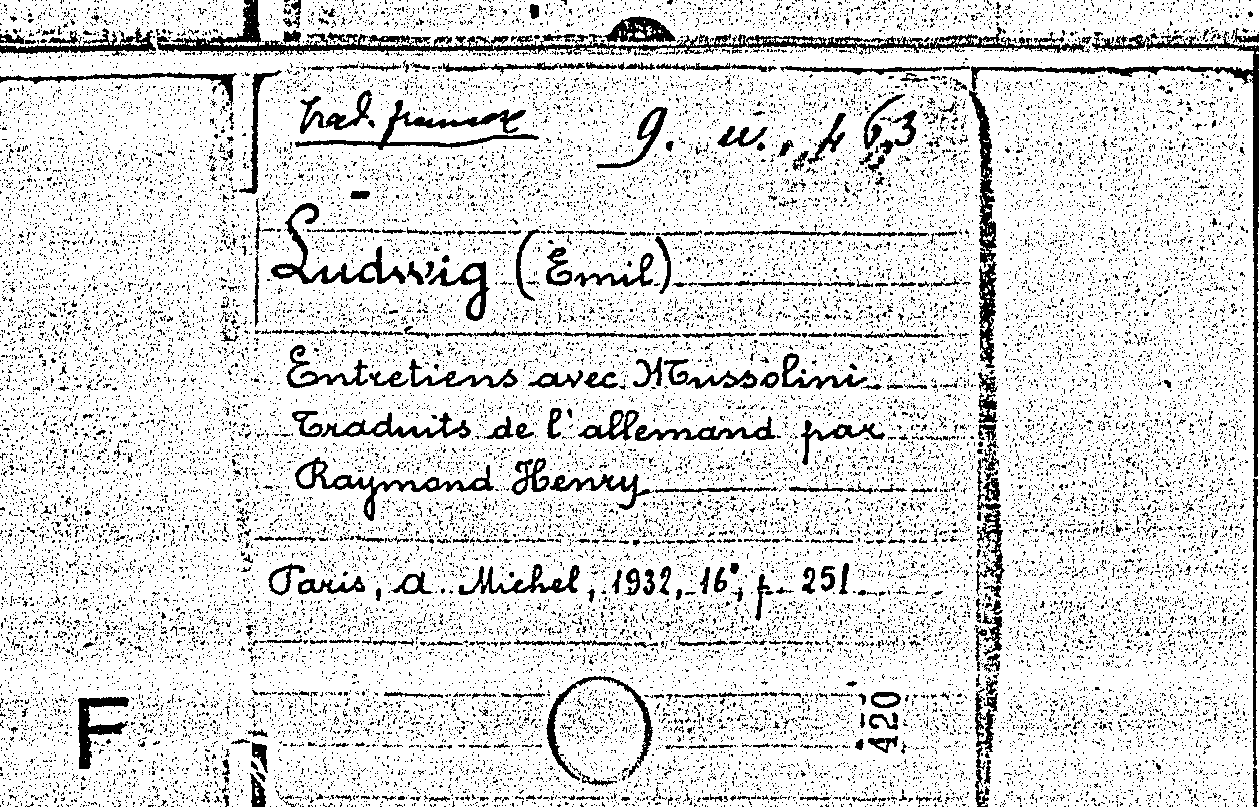 Trad. francese
Ludwig (Emil)
Entretiens avec Mussolini
Traduits de l'allemand par
Raymond Henry
Paris, A. Michel, 1932, 16°, p. 251.
420
F